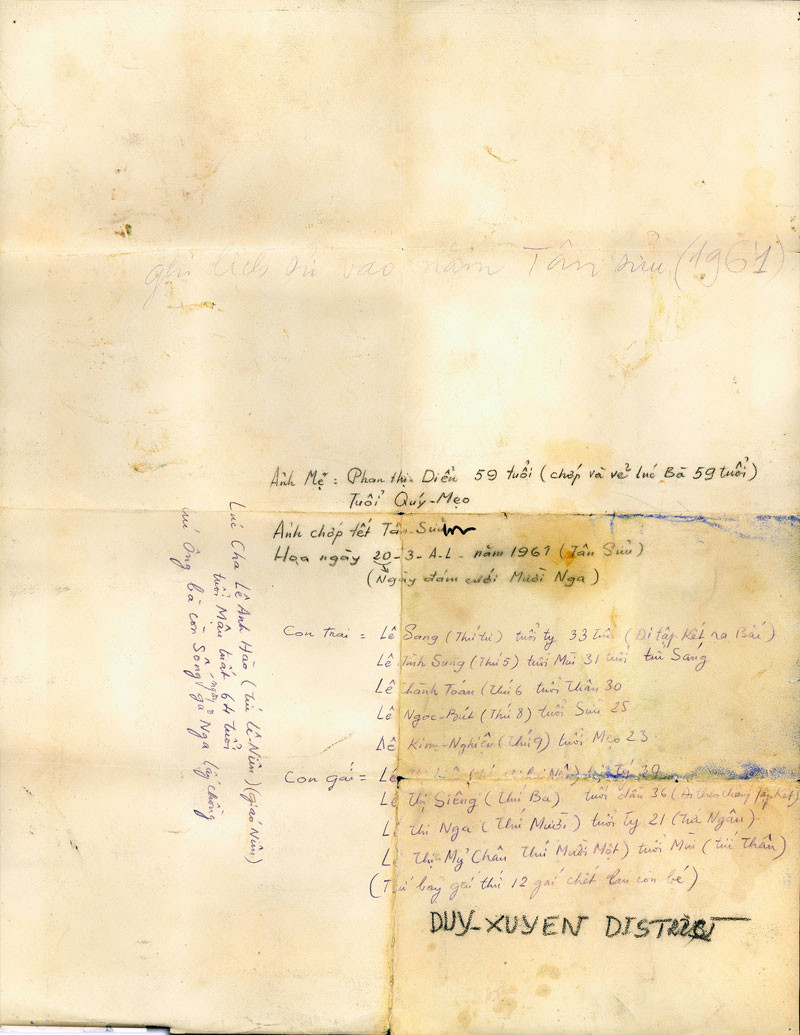 ghi lịch sử vào năm Tân sửu (1961)
Ảnh Mẹ = Phan thị Diển 59 tuổi (chớp và vẽ lúc Bà 59 tuổi)
Tuổi Quý-Mẹo
Ảnh chớp tết Tân-Sửu
Họa ngày 20-3-A-L- năm 1961 (Tân Sửu)
(Ngày đám cưới Mười Nga)
Con trai = Lê Sang (Thứ tư) tuổi tỵ 33 tuổi (Đi tập Kết ra Bắc)
Lê Tình Sung (Thứ 5) tuổi Mùi 31 tuổi tức Sáng
Lê Thành Toán (Thứ 6 tuổi Thân 30
Lê Ngọc-Bút (Thứ 8) tuổi Sửu 25
Lê Kim-Nghiêu (Thứ 9) tuổi Mẹo 23
Con gái = Lê 39
Lê Thị Siêng (Thứ Ba) tuổi dần 36 (Đi theo chồng tập kết)
Lê thi Nga (Thứ Mười) tuổi Tỵ 21 (Trà Ngân)
Lê Thị Mỹ Chân Thứ Mười Một) tuổi Mùi (tức Thân)
(Thứ bảy gái thứ 12 gái chết lúc còn bé)
DUY-XUYEN DISTRICT
Lúc Cha Lê Anh Hào (tức lê-Niên) (giáo Niên)
tuổi Mậu tuất 64 tuổi
lúc Ông bà còn Sống gả Nga lấy chồng